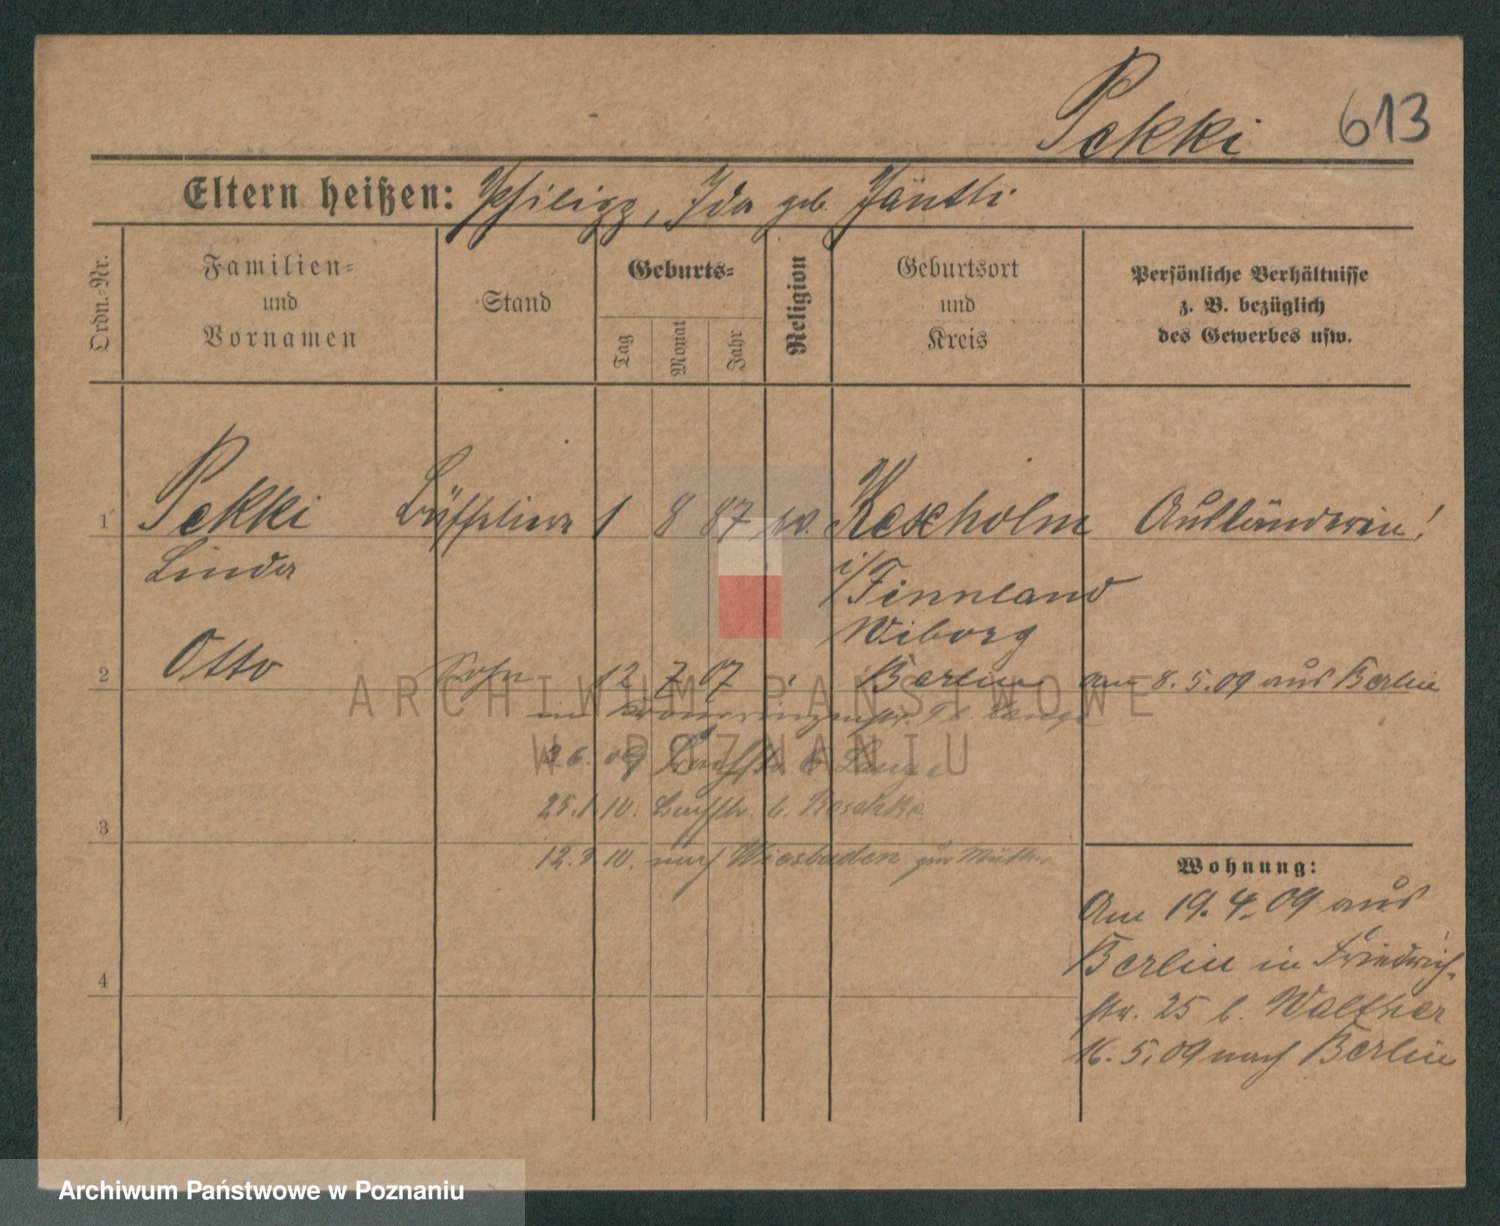 Pekki 613
Eltern heißen: Philipp, Ida geb. Jäntti
Ordn.=Nr.
Familien=
und
Vornamen
Stand
Geburts=
Tag
Monat
Jahr
Religion
Geburtsort
und
Kreis
Persönliche Verhältnisse
z. B. bezüglich
des Gewerbes usw.
1 Pekki 1 8 87 ev. Kexholm Ausländerin!
Linda i/Finnland
Wiborg
2 Otto Sohn 12 7 07 Berlin am 8. 5. 09 aus Berlin
3. 6. 09 b. Lange
3 25. 1. 10. b.
12. 9. 10. nach Wiesbaden zur Mutter
Wohnung:
Am 19. 4. 09 aus
Berlin in Friedrich-
4 str. 25 b. Walther
16. 5. 09 nach Berlin
ARCHIWUM PAŃSTWOWE
W POZNANIU
Archiwum Państwowe w Poznaniu